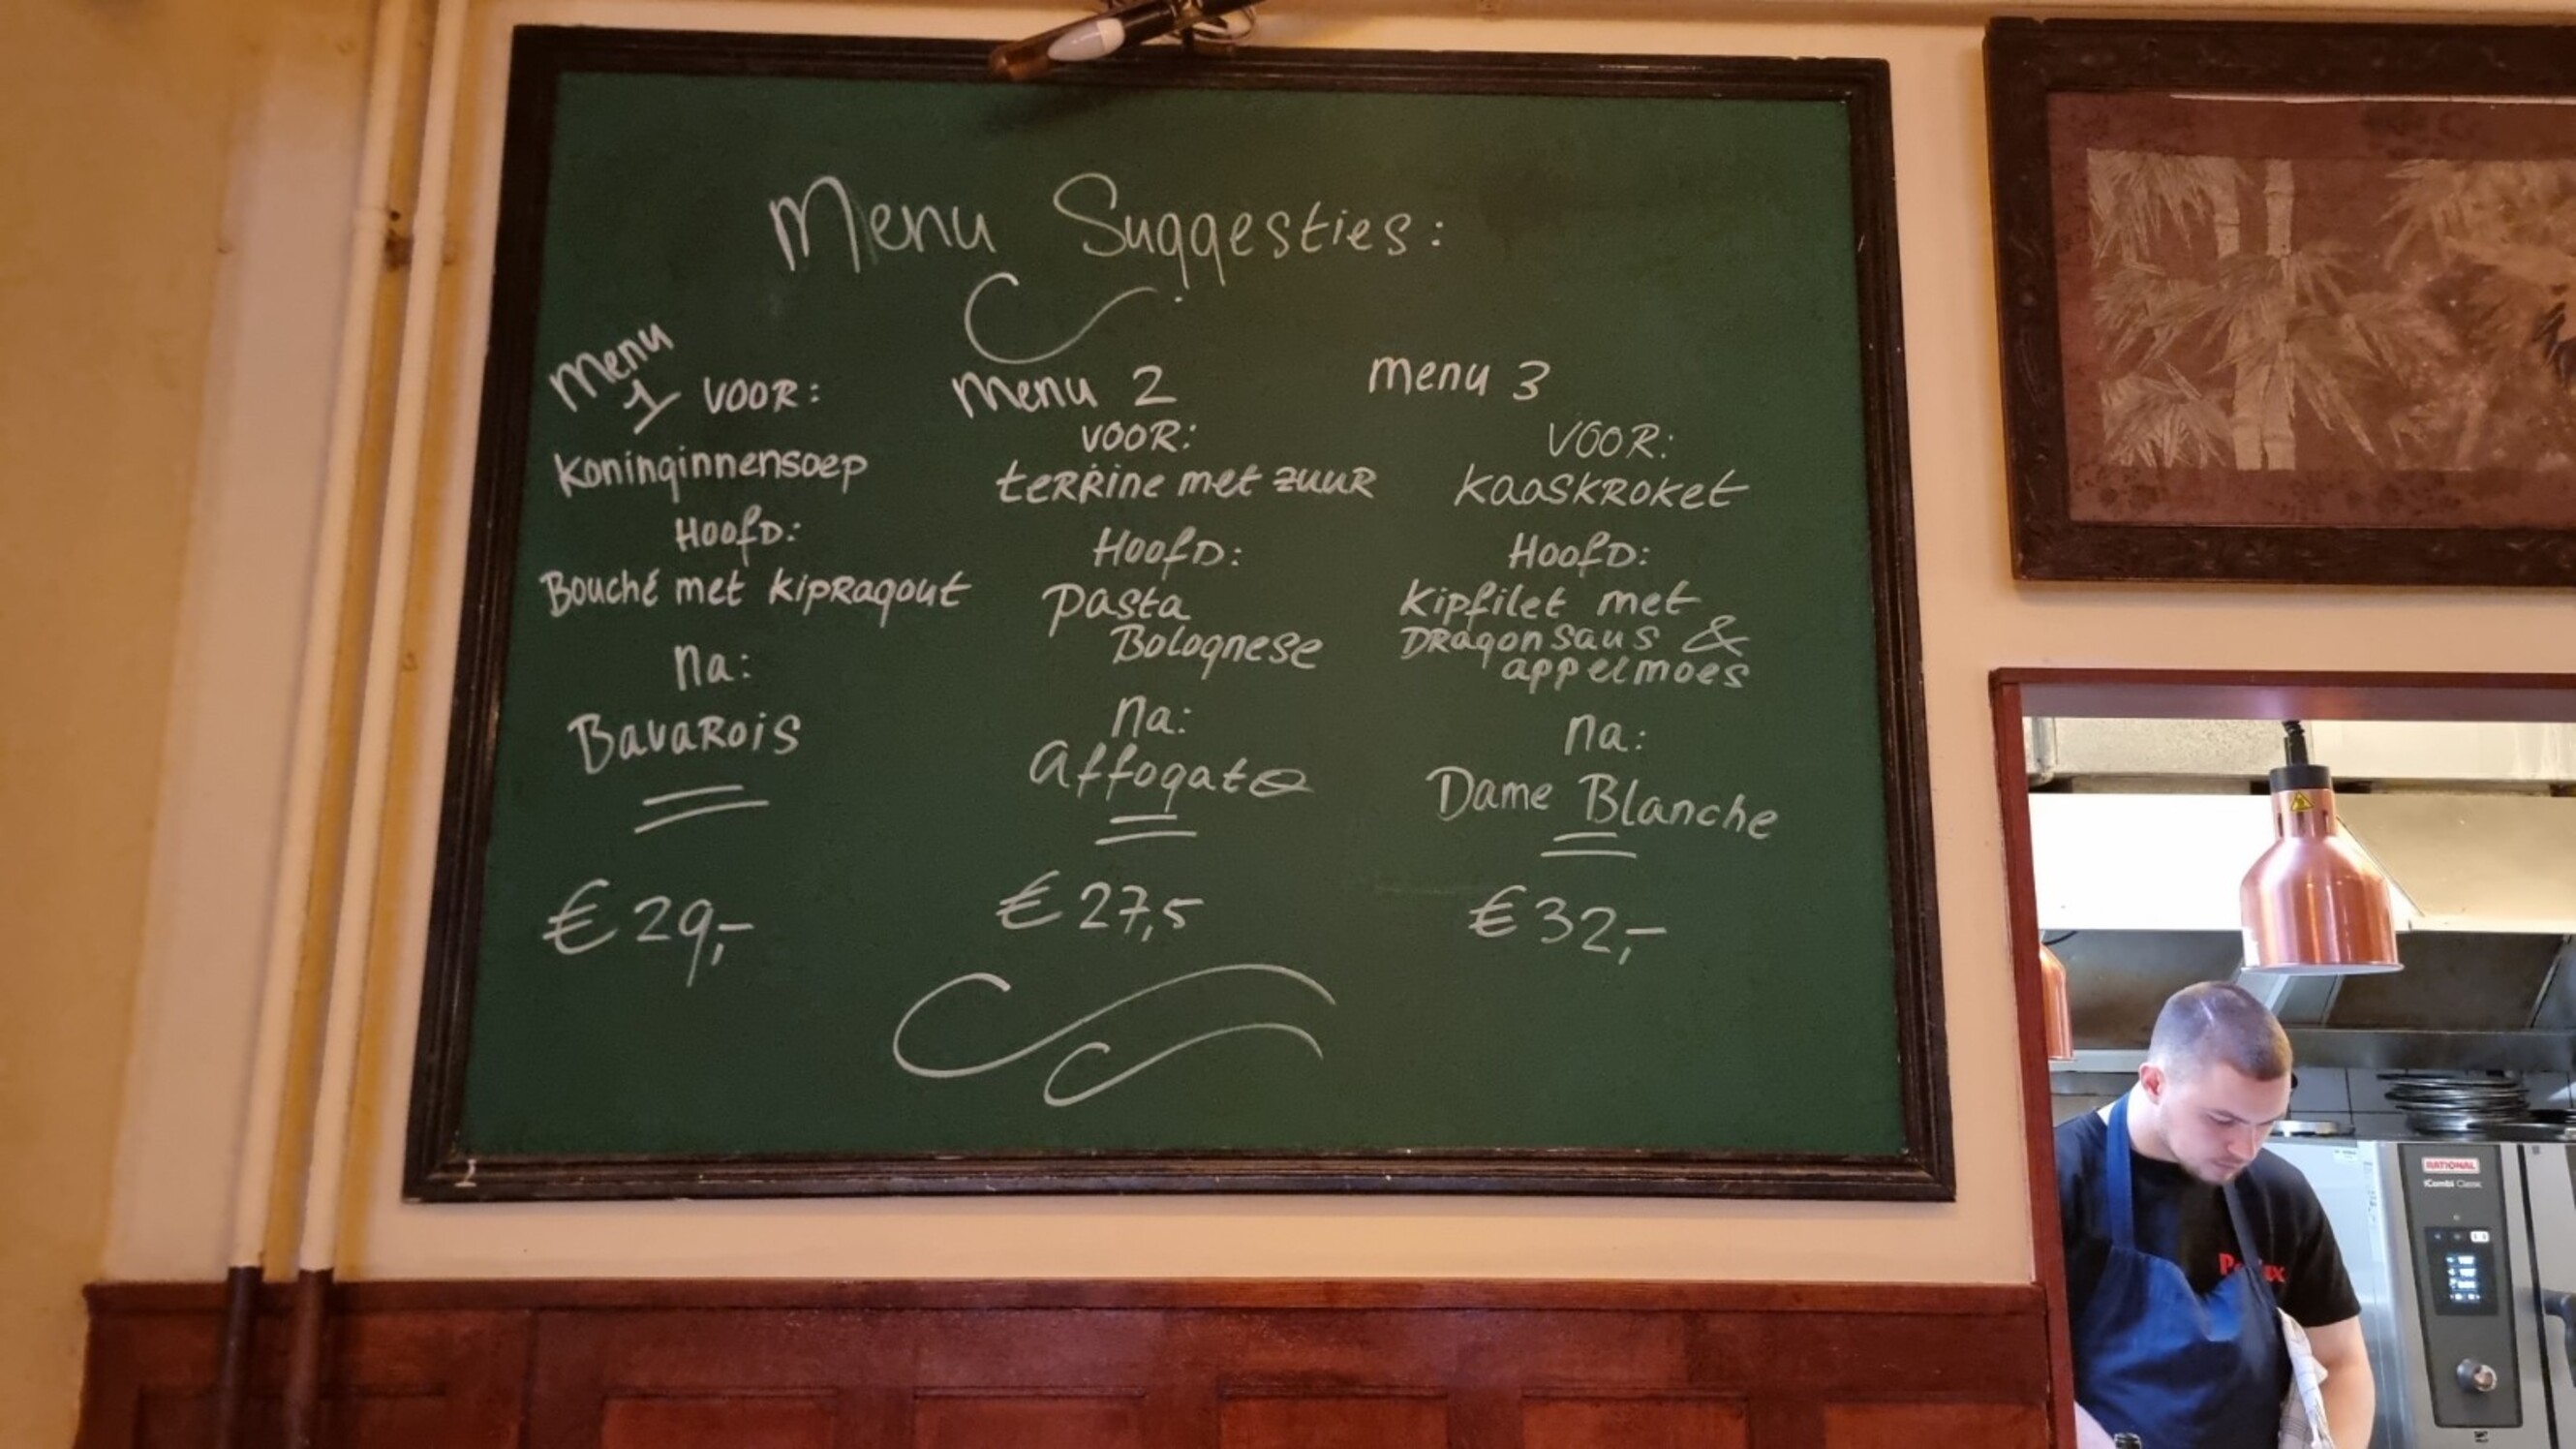 Menu Suggesties:
Menu
1 VOOR:
Koninginnensoep
Hoofd:
Bouché met kipragout
Na:
Bavarois
€ 29,-
Menu 2
VOOR:
terrine met zuur
Hoofd:
Pasta
Bolognese
Na:
Affogato
€ 27,5
Menu 3
VOOR:
Kaaskroket
Hoofd:
Kipfilet met
Dragonsaus &
appelmoes
Na:
Dame Blanche
€ 32,-
RATIONAL
iCombi Classic